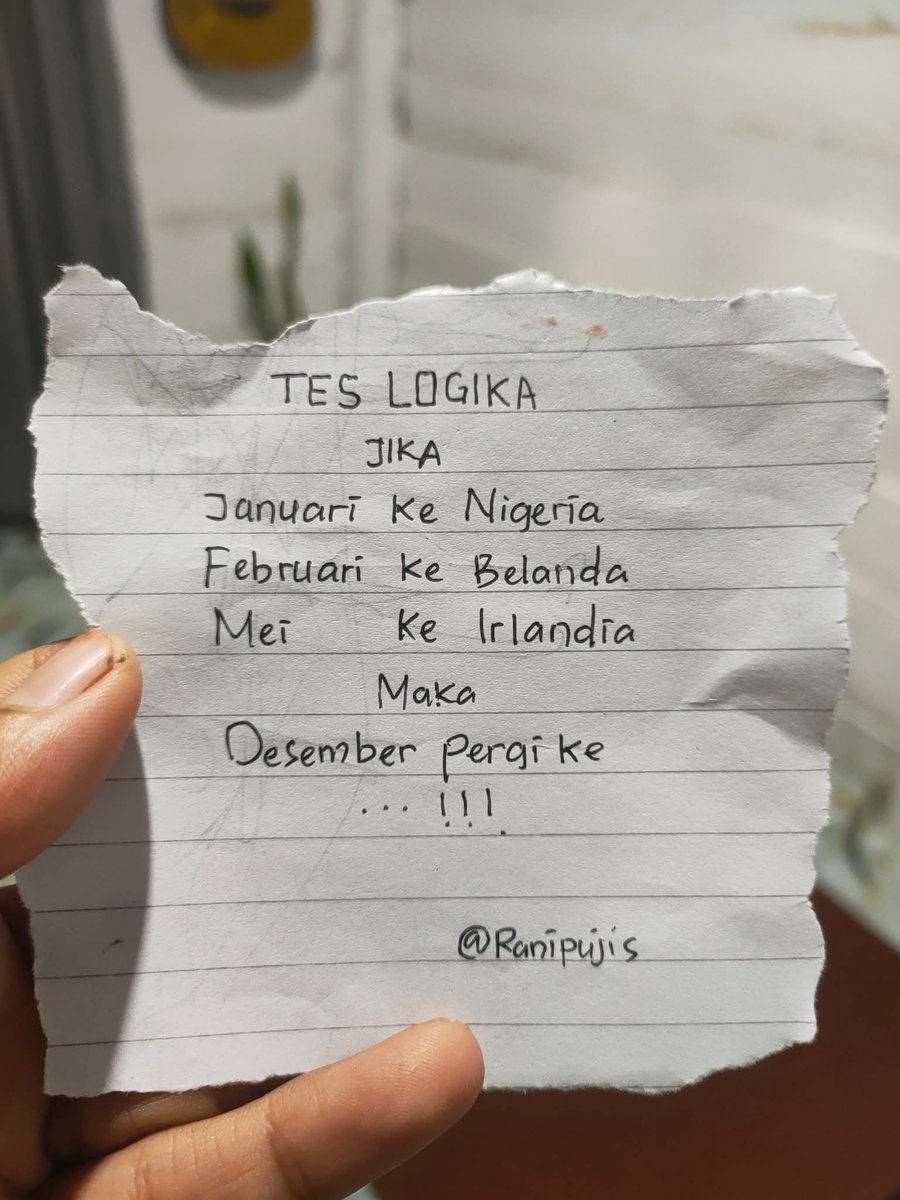 TES LOGIKA
JIKA
Januari ke Nigeria
Februari ke Belanda
Mei ke Irlandia
Maka
Desember pergi ke
... !!!
@Ranipujis